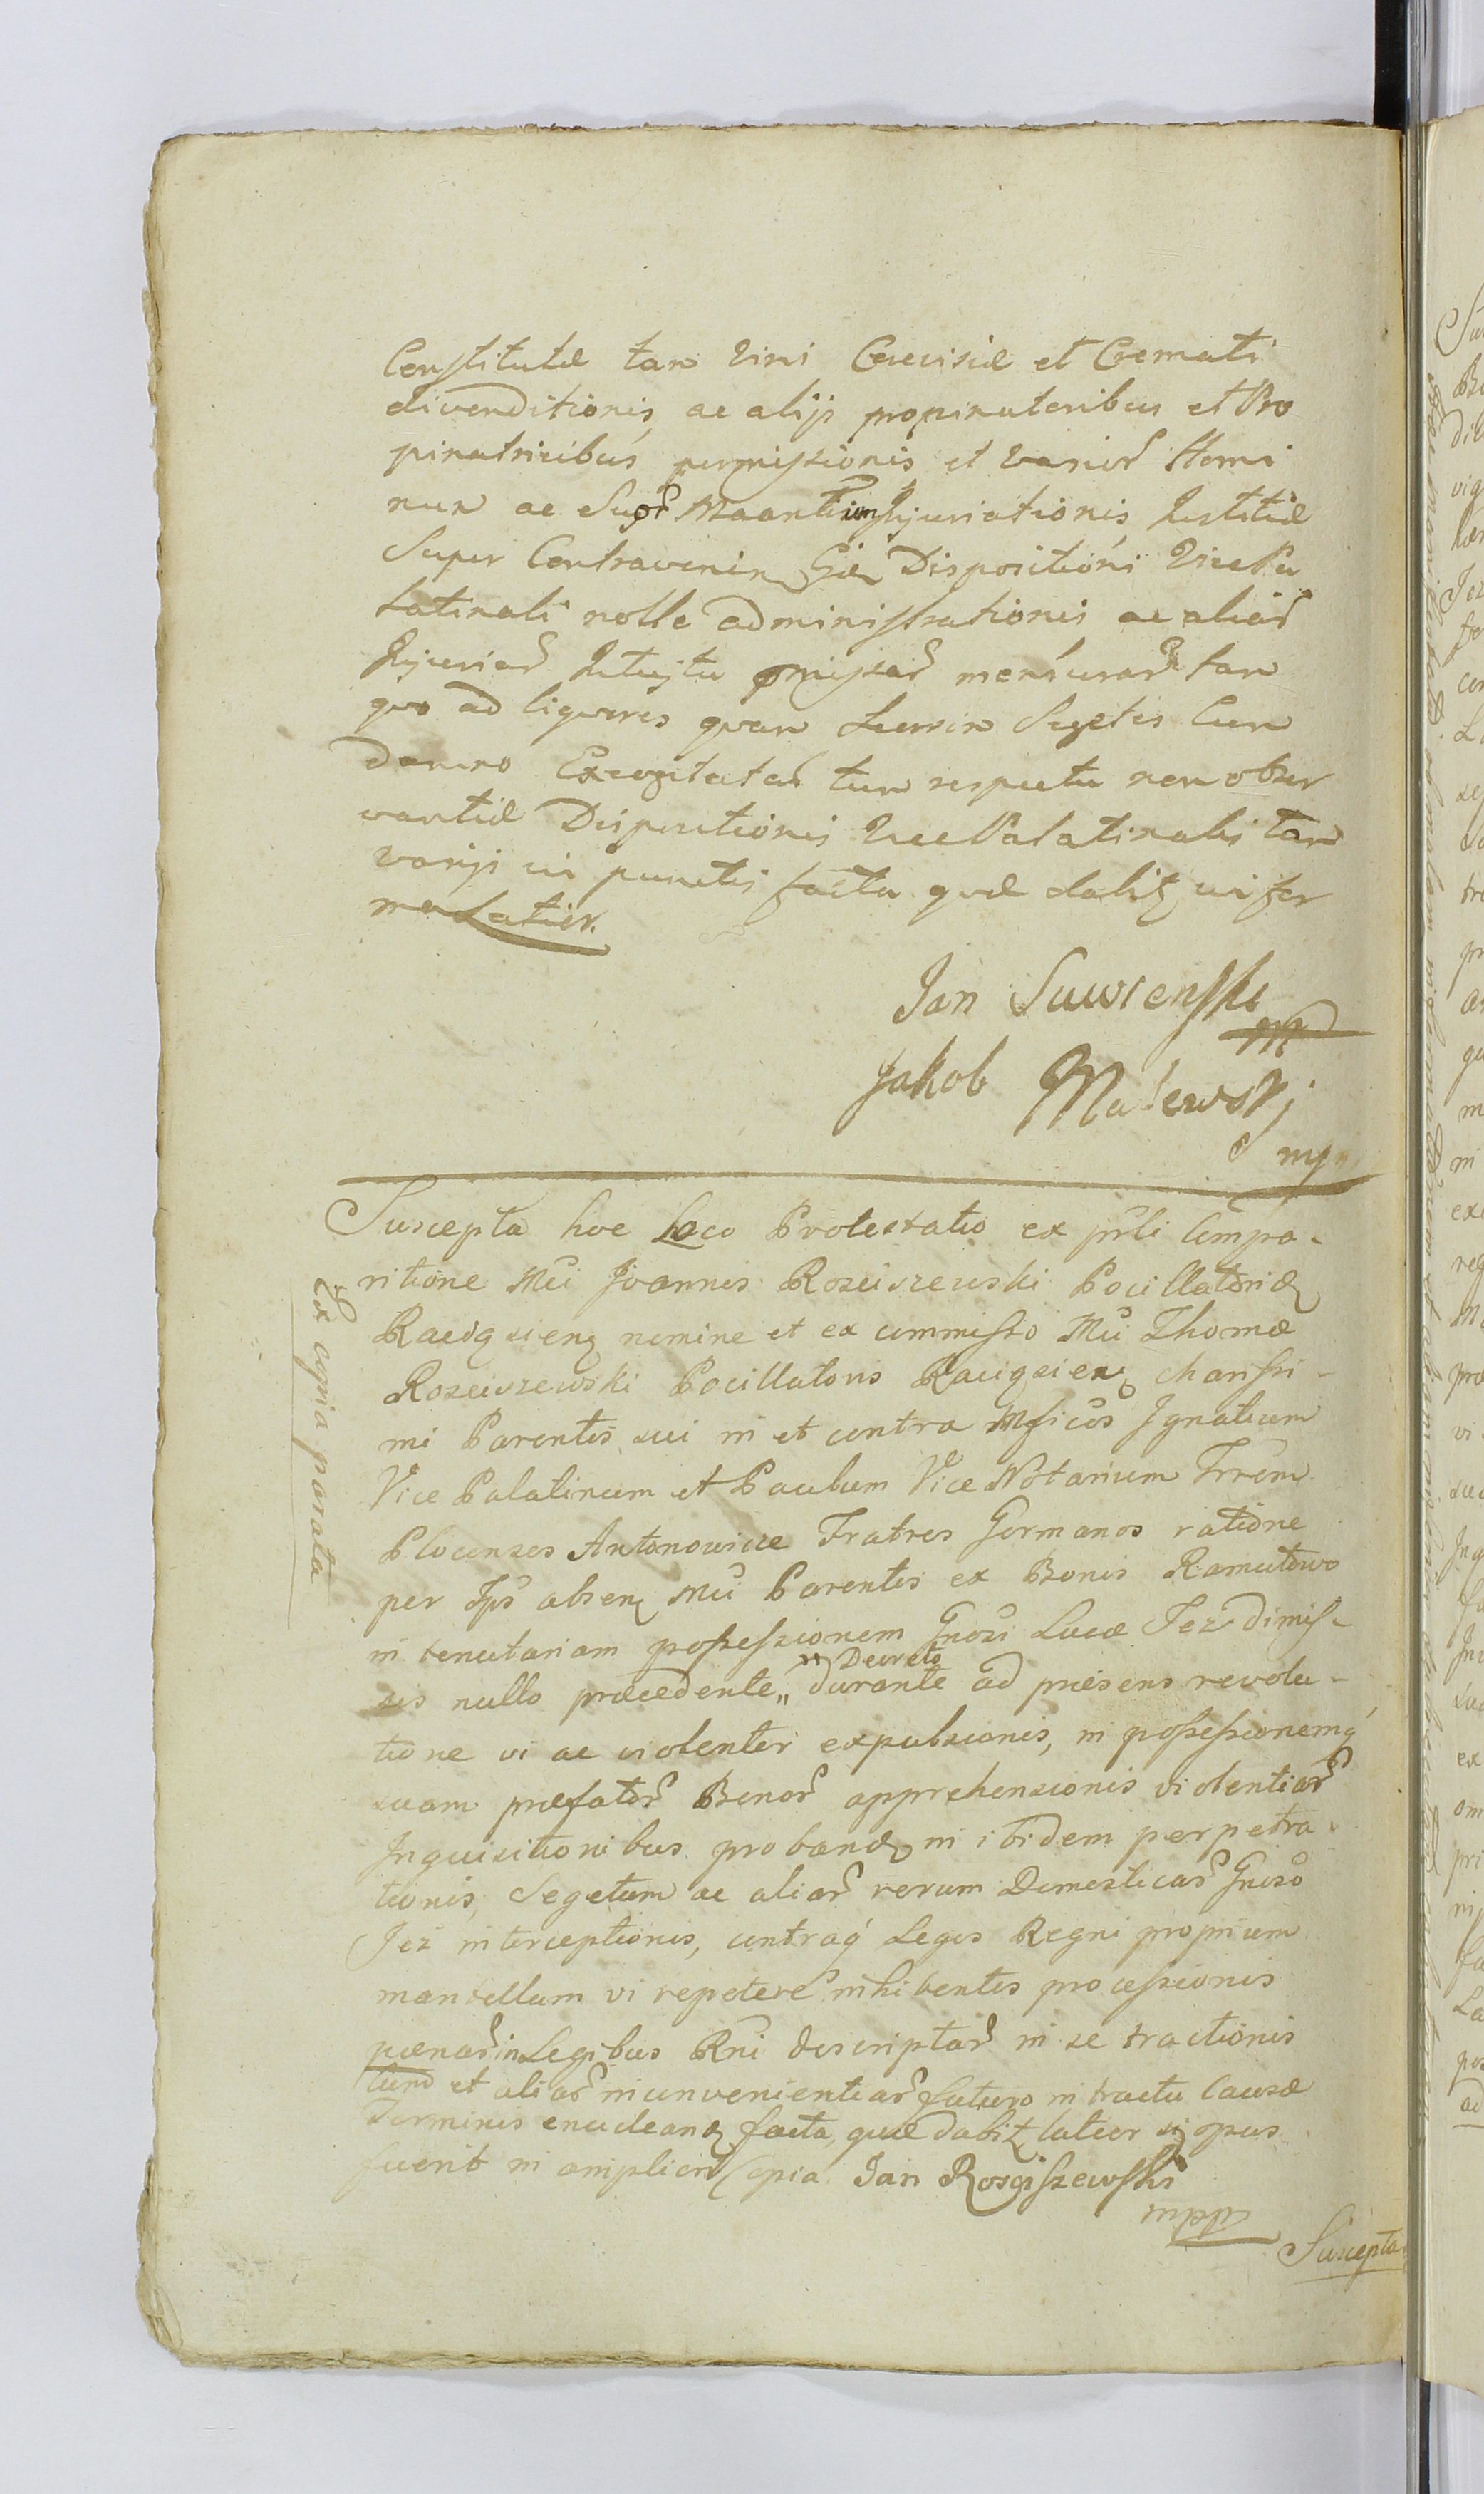 Constitutæ tam Vini Cerevisiæ et Cremati
divenditionis, ac alijs propinatoribus et Pro
pinatricibus permissionis et varior Homi
num ac Injuriationis Justitiæ
Super Contravenien Dispositioni VicePa
latinali nolle administrationis ac aliar
Injuriar Intuitu omissar mensurar tam
quo ad liquores quam Cum
damno Excogitatar tum respectu non obser
vantiæ Dispositionis VicePalatinalis tam
varijs in punctis facta quæ dabit in for
ma Latior.
Jan
Jakob
mpp
Suscepta hoc Loco Protestatio ex prsli Compa-
ritione Mci Joannis Rosciszewski Pocillatorid
Raciązien nomine et ex commisso Mci Thomæ
Rosciszewski Pocillatoris Raciązien charissi-
mi Parentis sui in et contra Mficos Ignatium
Vice Palatinum et Paulum Vice Notarium Trrem
Plocenses Antonowicze Fratres Germanos ratione
per Ips absen Mci Parentis ex Bonis Ramutowo
in tenutariam possessionem Gnosi Lucæ Jez dimis-
sis nullo præcedente „ durante ad præsens revolu-
„ Decreto
tione vi ac violenter expulsionis, in possessionemq
suam præfator Bonor apprehensionis violentiar
Inquisitionibus proband in ibidem perpetra-
tionis, Segetum ac aliar rerum Domesticar Gnoso
Jez interceptionis, contraq Leges Regni proprium
mantellum vi repetere inhibentes processionis
pænar in Legibus Rni descriptar in se tractionis
tum et aliar inconvenientiar futuro in tractu Causæ
Terminis enuclean facta, quæ dabit latior si opus
fuerit in ampliori Copia. Jan Rosciszewski
mpp
Suscepta
Ex copia parata